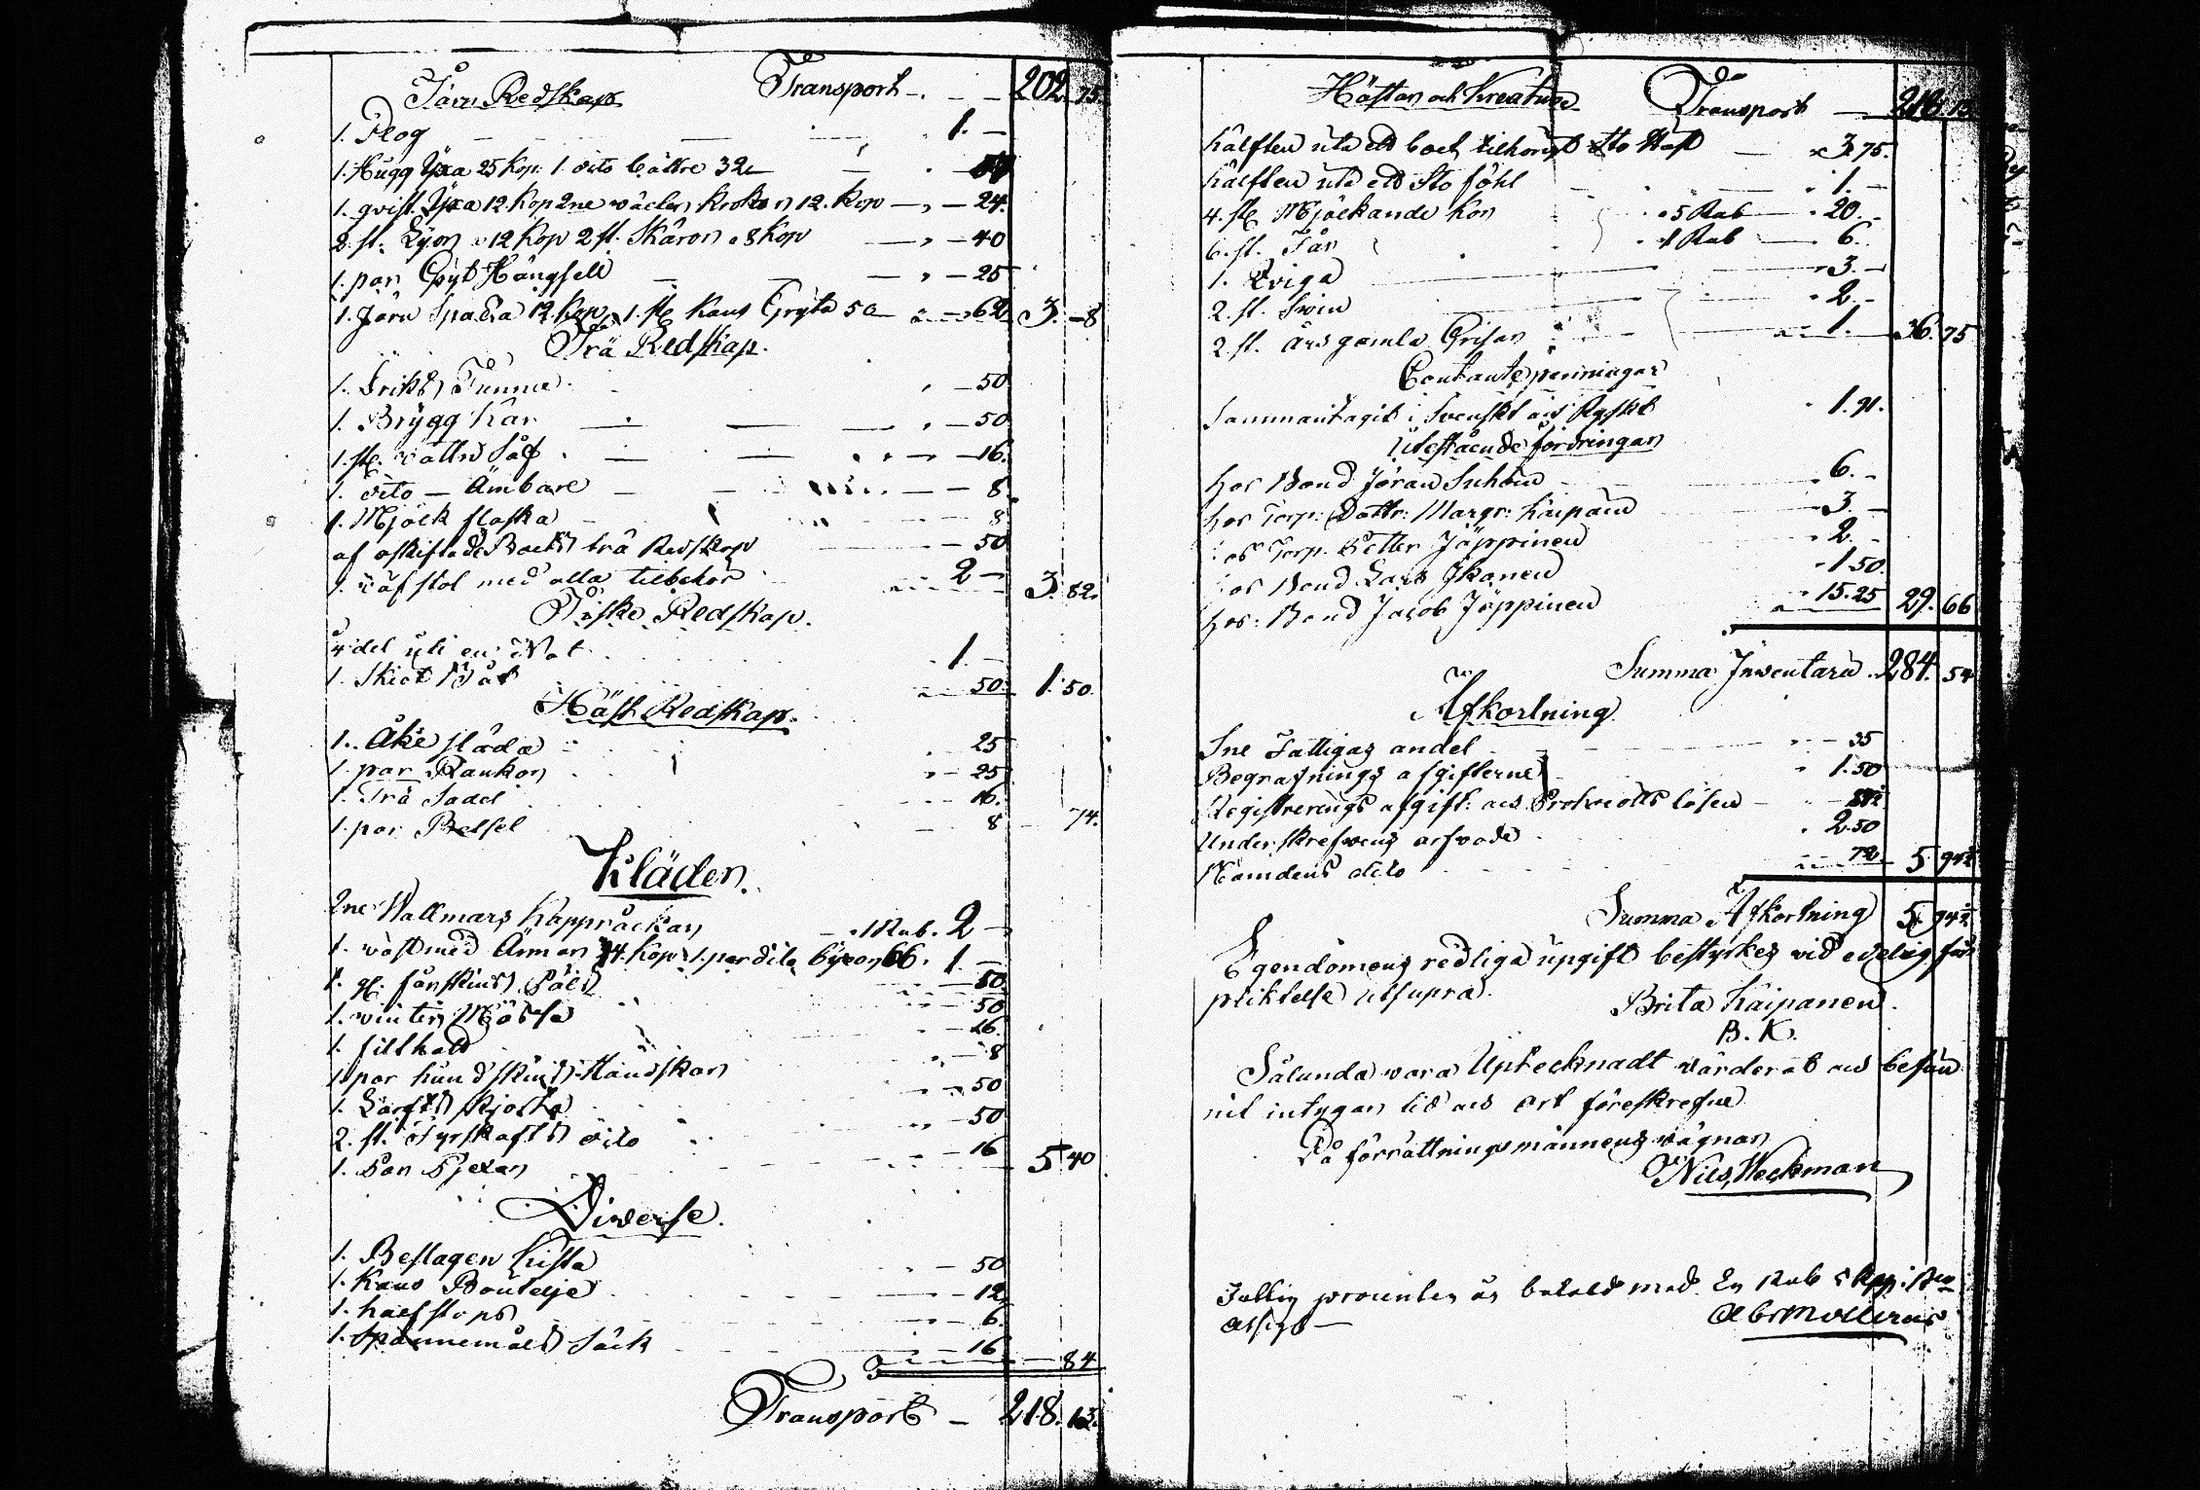 Järn Redskap Transport - 202. 75.
1. Plog 1. -
1. Hugg Yxa 25 kop: 1. dito bättre 32 - 57
1. qvist Yxa 12 kop 2ne väclen krokar 12. kop - 24.
2. st. Lÿor a 12 kop 2 st. Skäror a 8 kop - 40
1. par Gryt Hängsell - 25
1. Järn Spada 12 kop, 1. st Kans Gryta 50 - 62 3. - 8
Trä Redskap.
1. Driks Tunna - 50
1. Brÿgg kar - 50
1. st. vattu Så - 16.
1. dito - Ämbare - 8.
1. Mjölk flaska - 8
af oskiftade Boets trä Redskap - 50
1. väfstol med alla tilbehör 2 - 3. 82.
Fiske Redskap.
4 del uti en Not 1. -
1. Skiöt Båt 50. 1. 50.
Häst Redskap.
1. Åke släda 25
1. par Rankor 25
1. Trä Sadel 16.
1. par Betsel 8 74.
Kläder.
2ne Wallmars Kappråckar a 1 Rub. 2 -
1. väst med Ärmar 34. kop 1. par dito Byxor 66. 1. -
1. gl. fårskins Päls - 50
1. winter Mössa - 50
1. filthatt - 16.
1 par hundskins Handskar - 8
1. Lärfts skjorta - 50
2. st. dito - 50
1. Par Pjexor - 16 5 40
Diverse.
1. Beslagen kista - 50
1. Kans Bouteije - 12
1. half stops - 6.
1. Spannemåls Säck - 16 - 84
Transport - 218. 13.
Hästar och Kreatur Transport - 218. 13.
hälften uta ett boet tilhörigt Sto Häst 3. 75.
hälften uta ett Sto föhl 1. -
4. st Mjölkande Kor a 5 Rub - 20. -
6. st. Får a 1 Rub - 6.
1. Qviga 3. -
2. st. Swin 2. -
2. st. års gamla Grisar 1. - 36. 75
Contante penningar
Sammantagit i Svenskt och Ryskt 1. 91.
Utestående fordringar
hos Bond Jöran Suhoin 6. -
hos Torp. Dottr: Margr: Kaipain 3. -
hos Torp. Petter Jäppinen 2. -
hos Bond Lars Ikonen 1 50.
hos: Bond Jacob Jäppinen 15. 25 29. 66
Summa Inventarii 284. 54
Afkortning
Sne Fattigas andel - 35
Begrafnings afgifterne 1. 50
Registrerings afgift och Protocolls lösen - 87½
Underskrefwens arfvode 2. 50
Nämdens dito 72 5 94½
Summa Afkortning 5 94½
Egendomens redliga upgift bestyrkes vid edelig för
pliktelse utsupra.
Brita Kaipanen.
B. K.
Sålunda vara Uptecknadt värderat och befun
nit intygar tid och ort föreskrefne
På förrättningsmännens vägnar
Nils Weckman
Fattig procenten är betald med En Rub 5 kop: Bco
Assign -